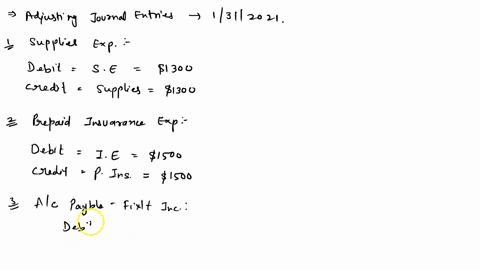 ⇒ Adjusting Journal Entries → 1/31/2021.
1 Supplies Exp.:-
Debit = S.E = $1300
Credit = Supplies = $1300
2 Prepaid Insuarance Exp:-
Debit = I.E = $1500
Credit = P. Ins. = $1500
3 A/c Payble - Fixit Inc:
Debi